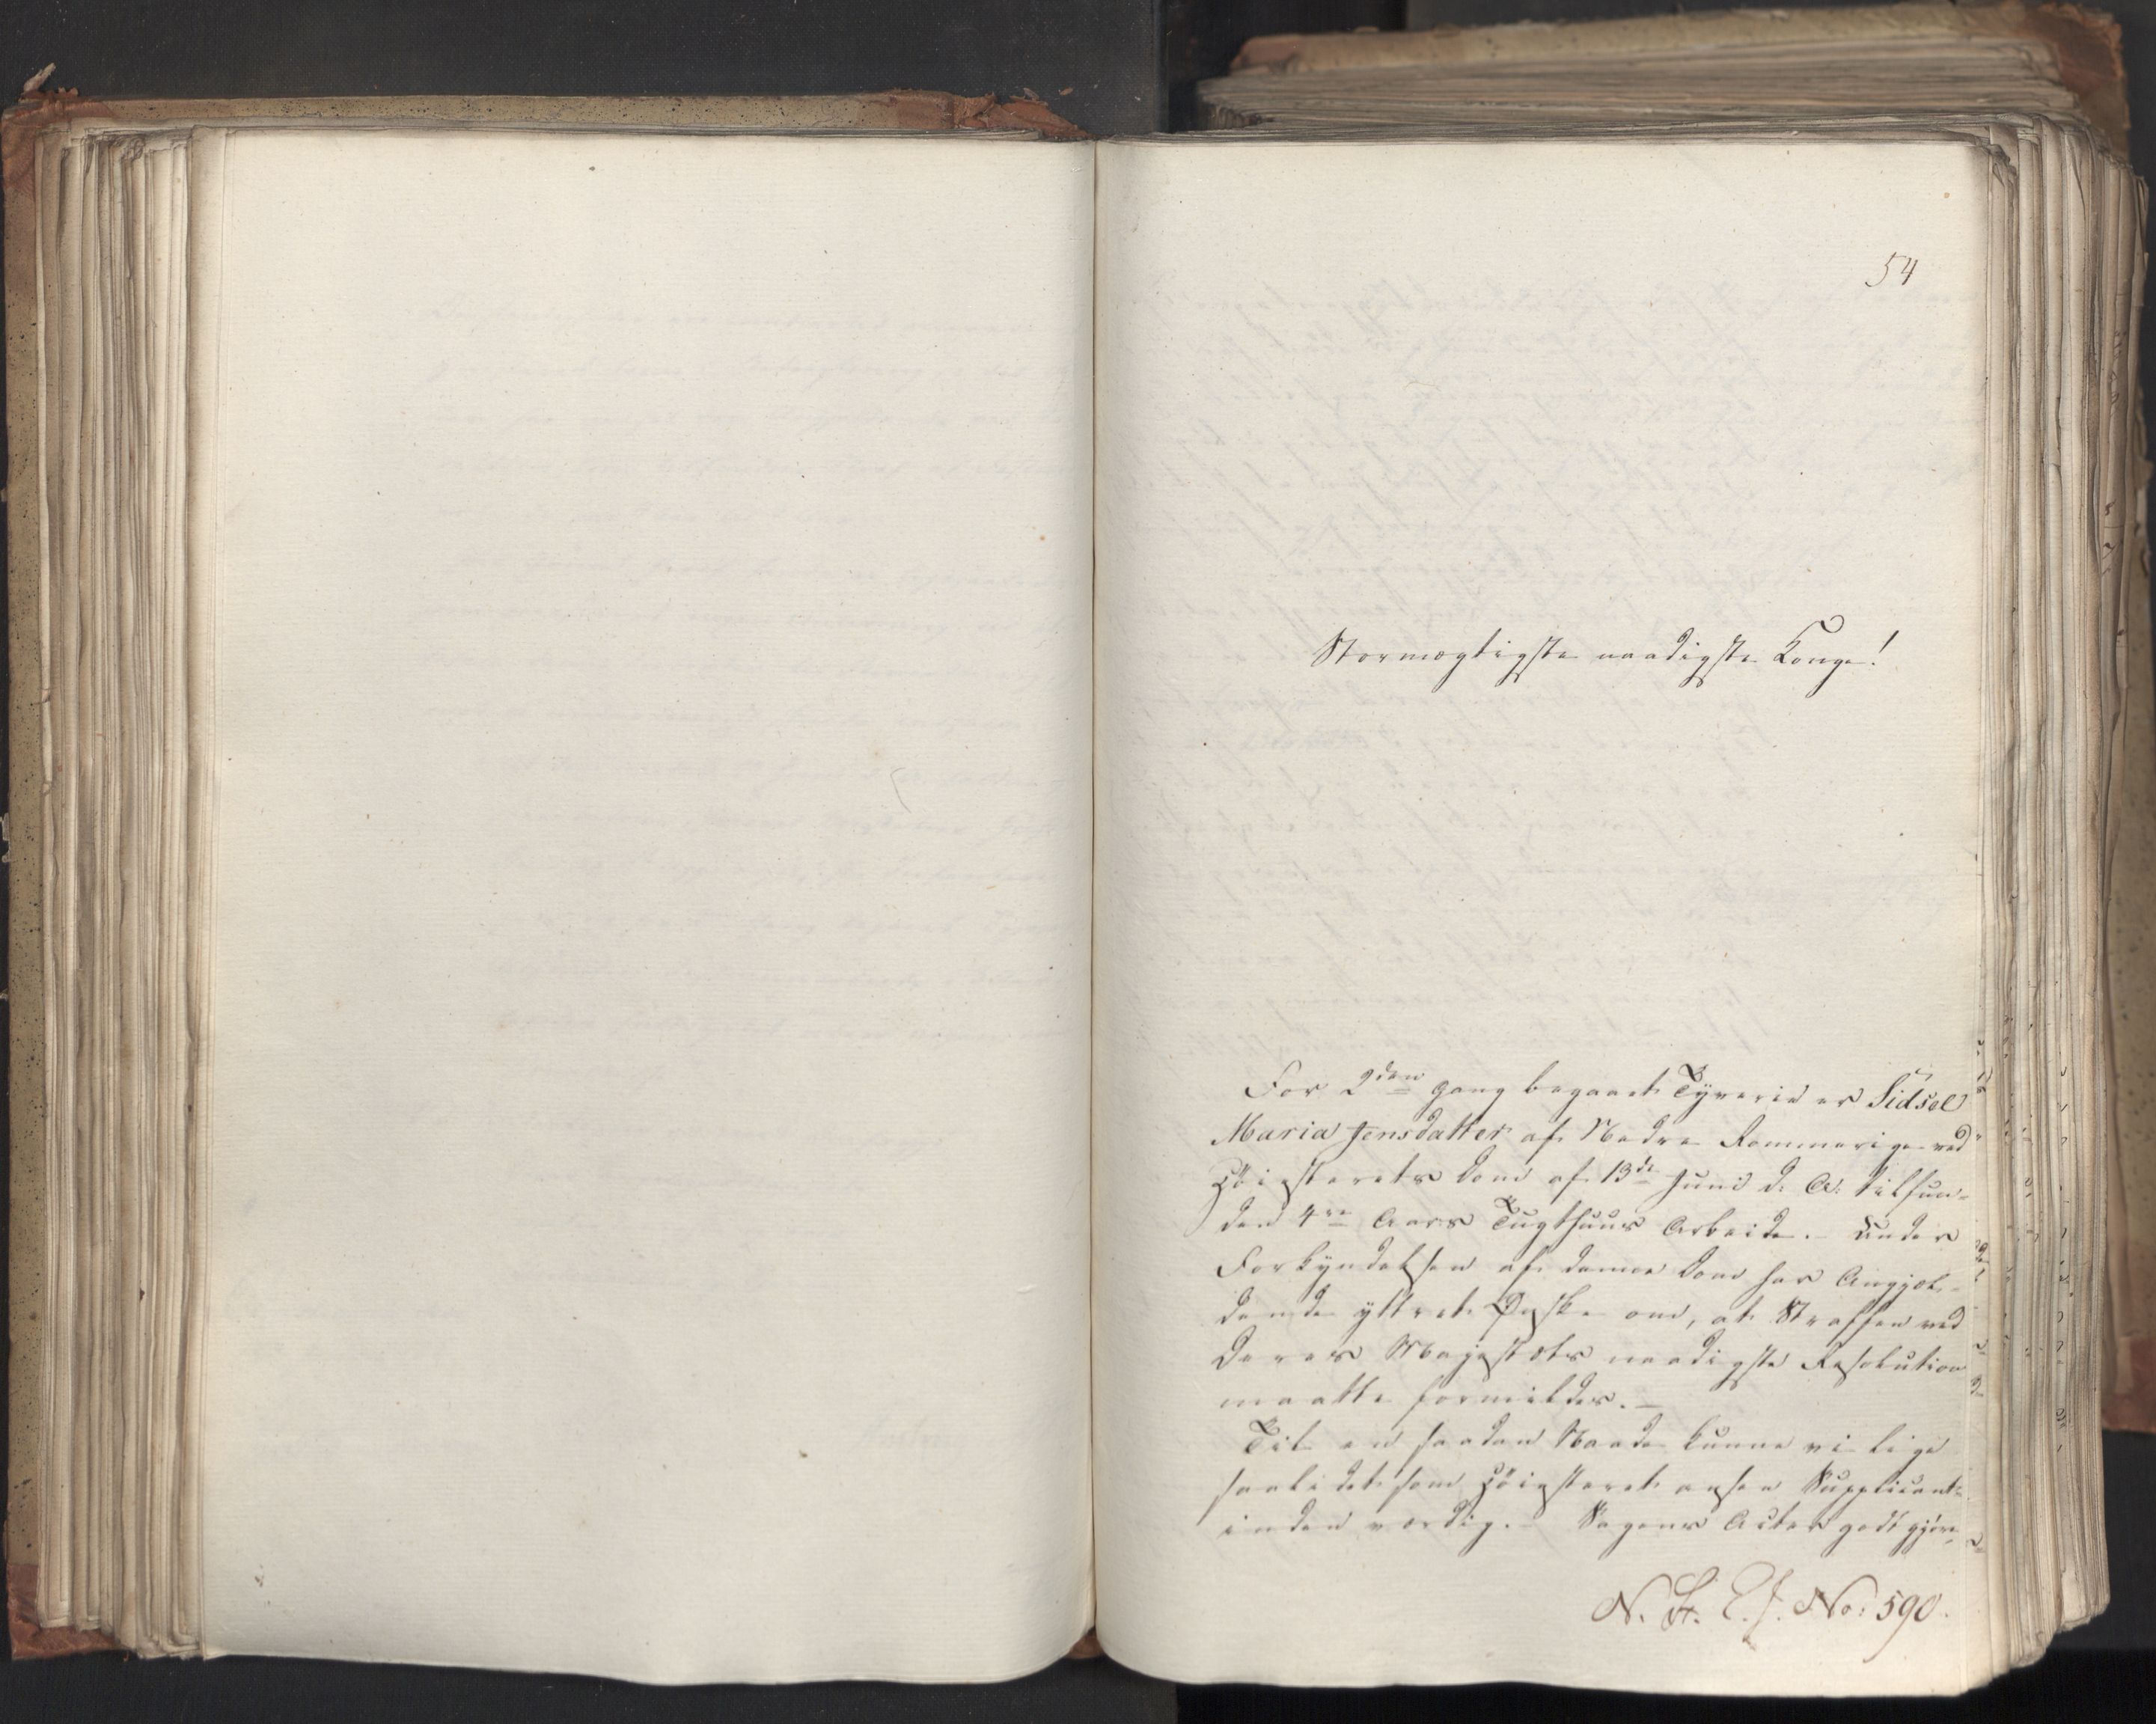 54
Stormægtigste naadigste Konge!
For 2den Gang begaaet Tyverie er Sidsel
Maria Jensdatter af Nedre Rommerige ved
Høiesterets Dom af 13de Juni d: A: tilfun-
den 4re Aars Tugthuus Arbeide. – Under
Forkyndelsen af denne Dom har Angjæl-
dende yttret Ønske om, at Straffen ved
Deres Majestæts naadigste Resolution
maatte formildes. –
Til en saadan Naade kunne vi lige
saalidet som Høiesteret ansee Supplicant-
inden værdig. – Sagens Acter godtgjøre,
N. St. E. J. No: 590.